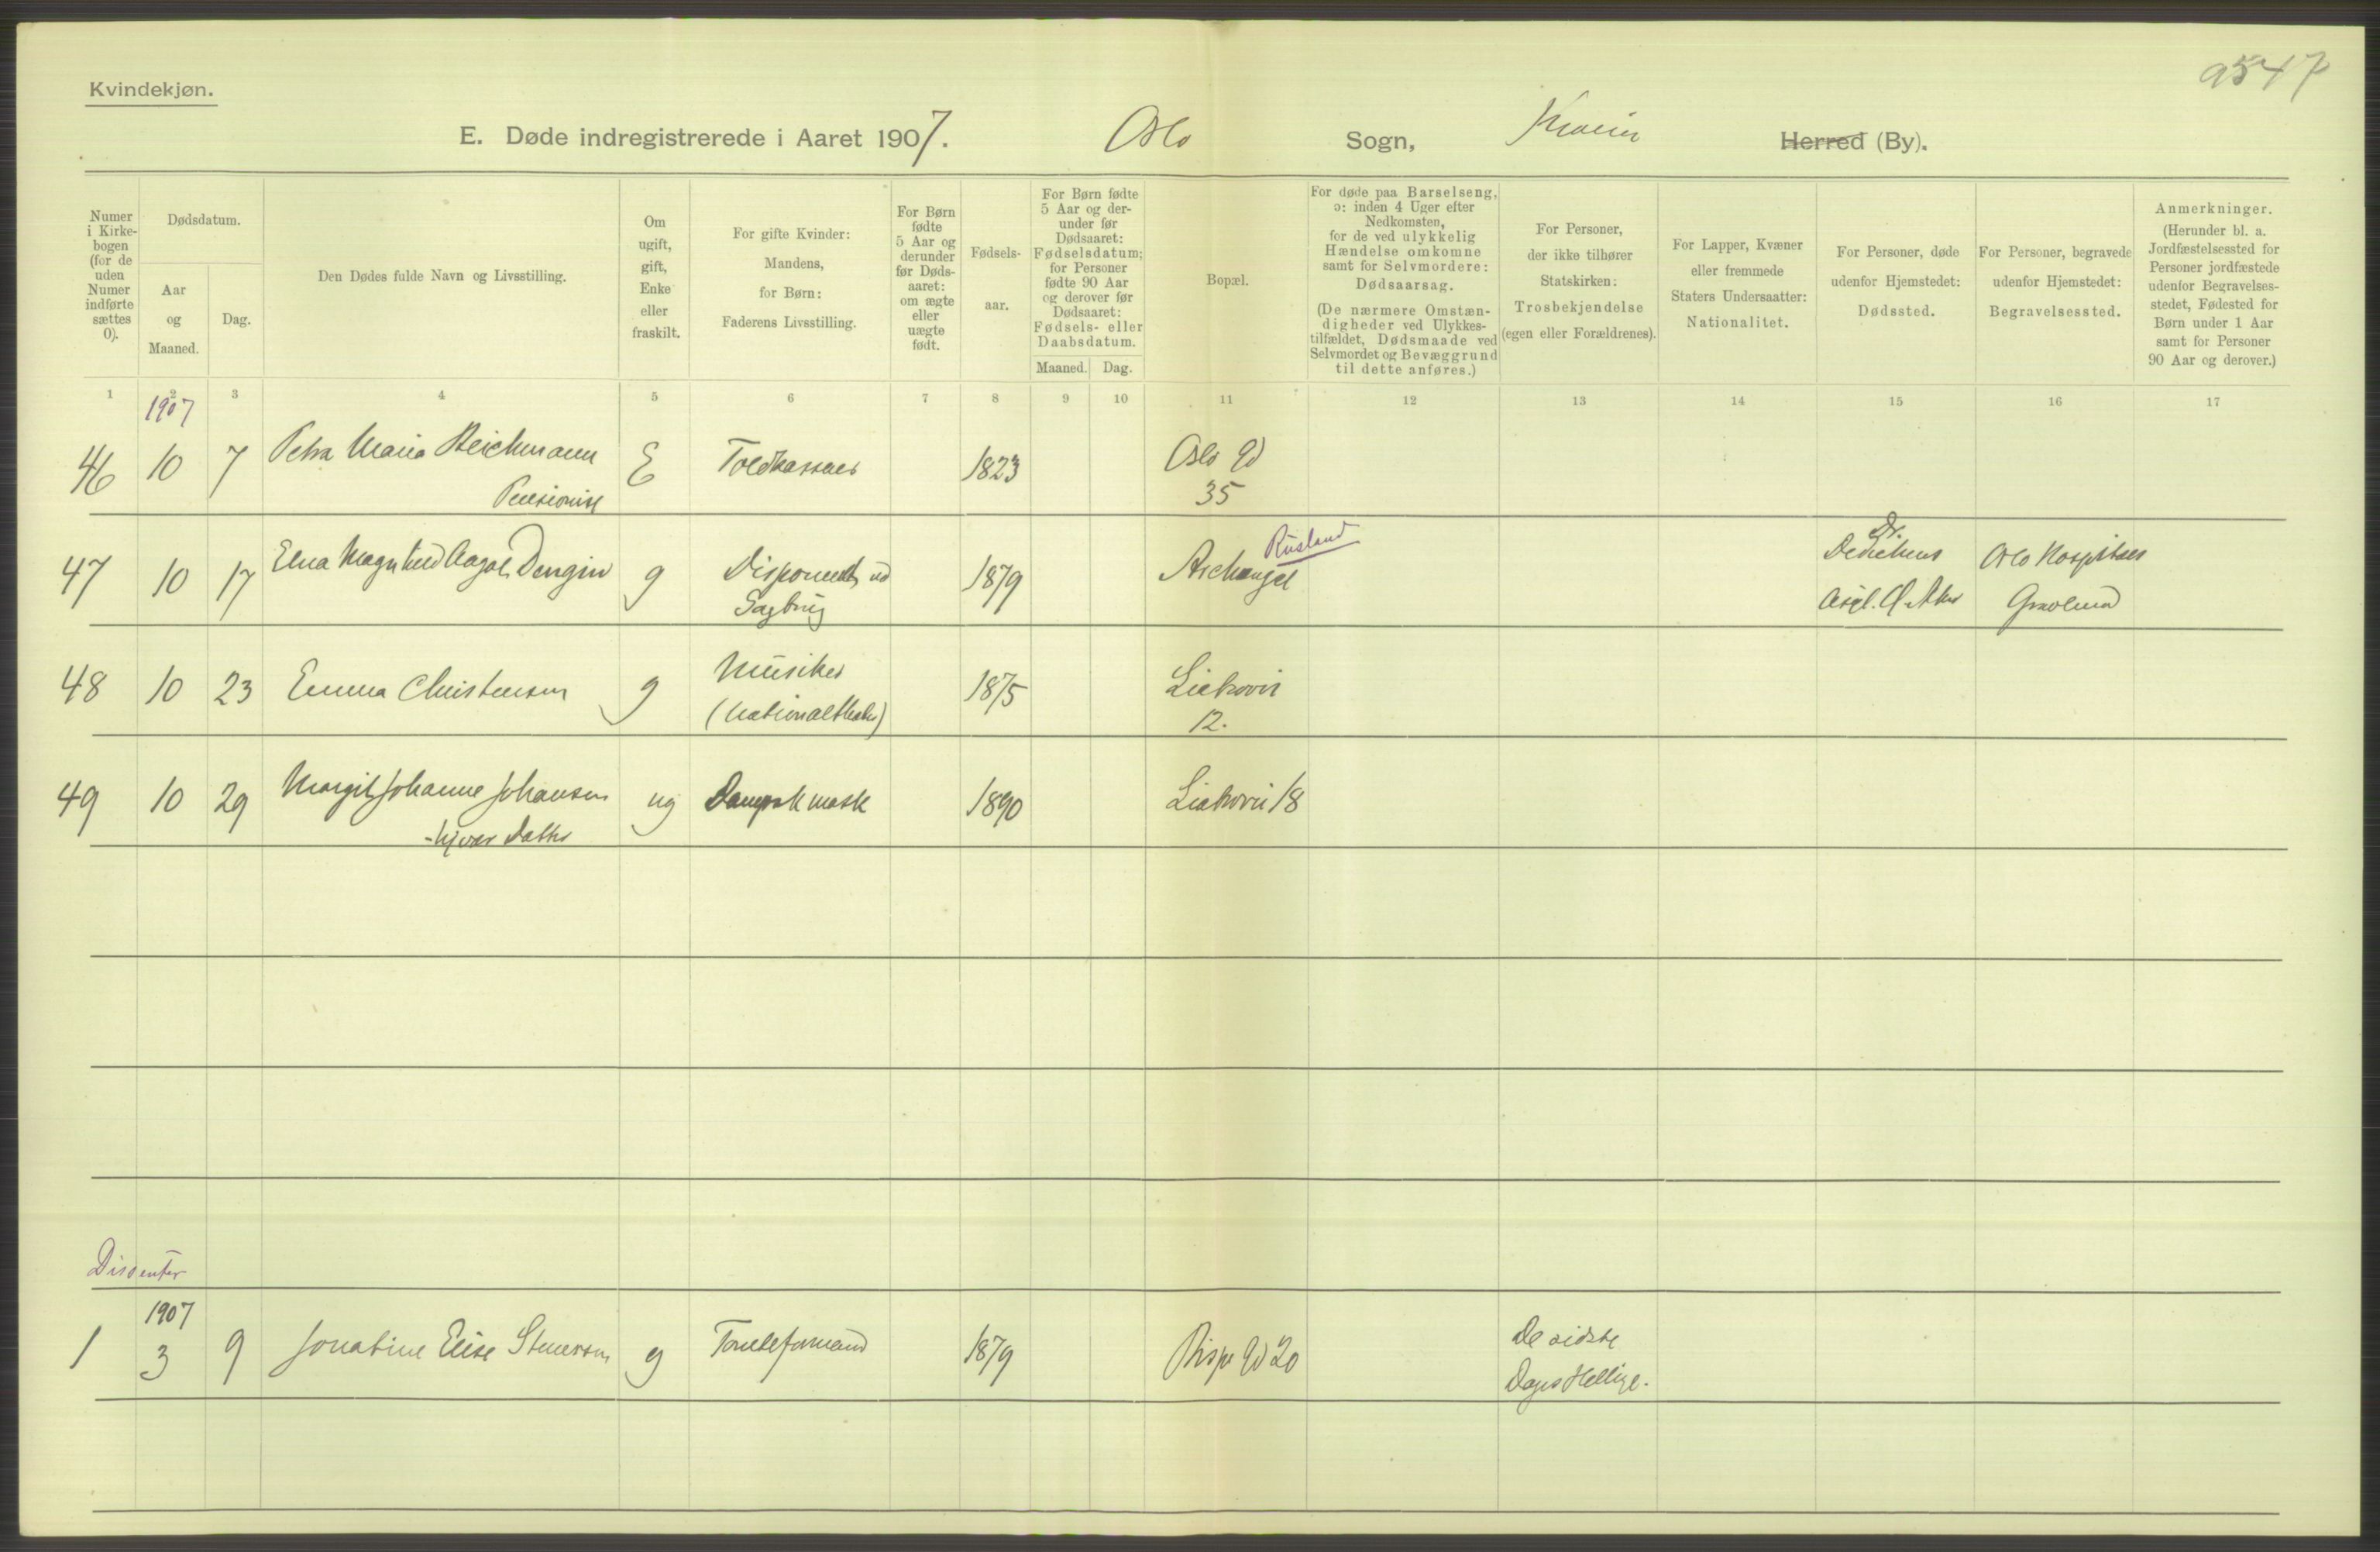 9547
Kvindekjøn.
E. Døde indregistrerede i Aaret 1907. Oslo Sogn, Kra Herred (By).
Numer
i Kirke-
bogen
(for de
uden
Numer
indførte
sættes
0).
Dødsdatum.
Aar
og
Maaned.
Dag.
Den Dødes fulde Navn og Livsstilling.
Om
ugift,
gift,
Enke
eller
fraskilt.
For gifte Kvinder:
Mandens,
for Børn:
Faderens Livsstilling.
For Børn
fødte
5 Aar og
derunder
før Døds-
aaret:
om ægte
eller
uægte
født.
Fødsels-
aar.
For Børn fødte
5 Aar og der-
under før
Dødsaaret:
Fødselsdatum;
for Personer
fødte 90 Aar
og derover før
Dødsaaret:
Fødsels- eller
Daabsdatum.
Maaned. Dag.
Bopæl.
For døde paa Barselseng,
ɔ: inden 4 Uger efter
Nedkomsten,
for de ved ulykkelig
Hændelse omkomne
samt for Selvmordere:
Dødsaarsag.
(De nærmere Omstæn-
digheder ved Ulykkes-
tilfældet, Dødsmaade ved
Selvmordet og Bevæggrund
til dette anføres.)
For Personer,
der ikke tilhører
Statskirken:
Trosbekjendelse
(egen eller Forældrenes).
For Lapper, Kvæner
eller fremmede
Staters Undersaatter:
Nationalitet.
For Personer, døde
udenfor Hjemstedet:
Dødssted.
For Personer, begravede
udenfor Hjemstedet:
Begravelsessted.
Anmerkninger.
(Herunder bl. a.
Jordfæstelsessted for
Personer jordfæstede
udenfor Begravelses-
stedet, Fødested for
Børn under 1 Aar
samt for Personer
90 Aar og derover.)
1 2 3 4 5 6 7 8 9 10 11 12 13 14 15 16 17
1907
46 10 7 Petra Maria Reichmann E Toldkasserer 1823 Oslo Gd
Pensionist 35
47 10 17 Elna Dengin g Disponent ved 1879 Archangel Rusland Dr. Dedichens Oslo Hospitals
Sagbrug Asyl. Ø. Aker Gravlund
48 10 23 Emma Christensen g Musiker 1875 Liakovei
(Nationaltheater) 12.
49 10 29 Margit Johanne Johansen ug Dampsk mask 1890 Liakovei 18
Hjvær Datter
Dissenter
1907
1 3 9 Jonatine Elise Stenersen g Tomteformand 1879 Bispe Gd 20 De sidste
Dages Hellige.